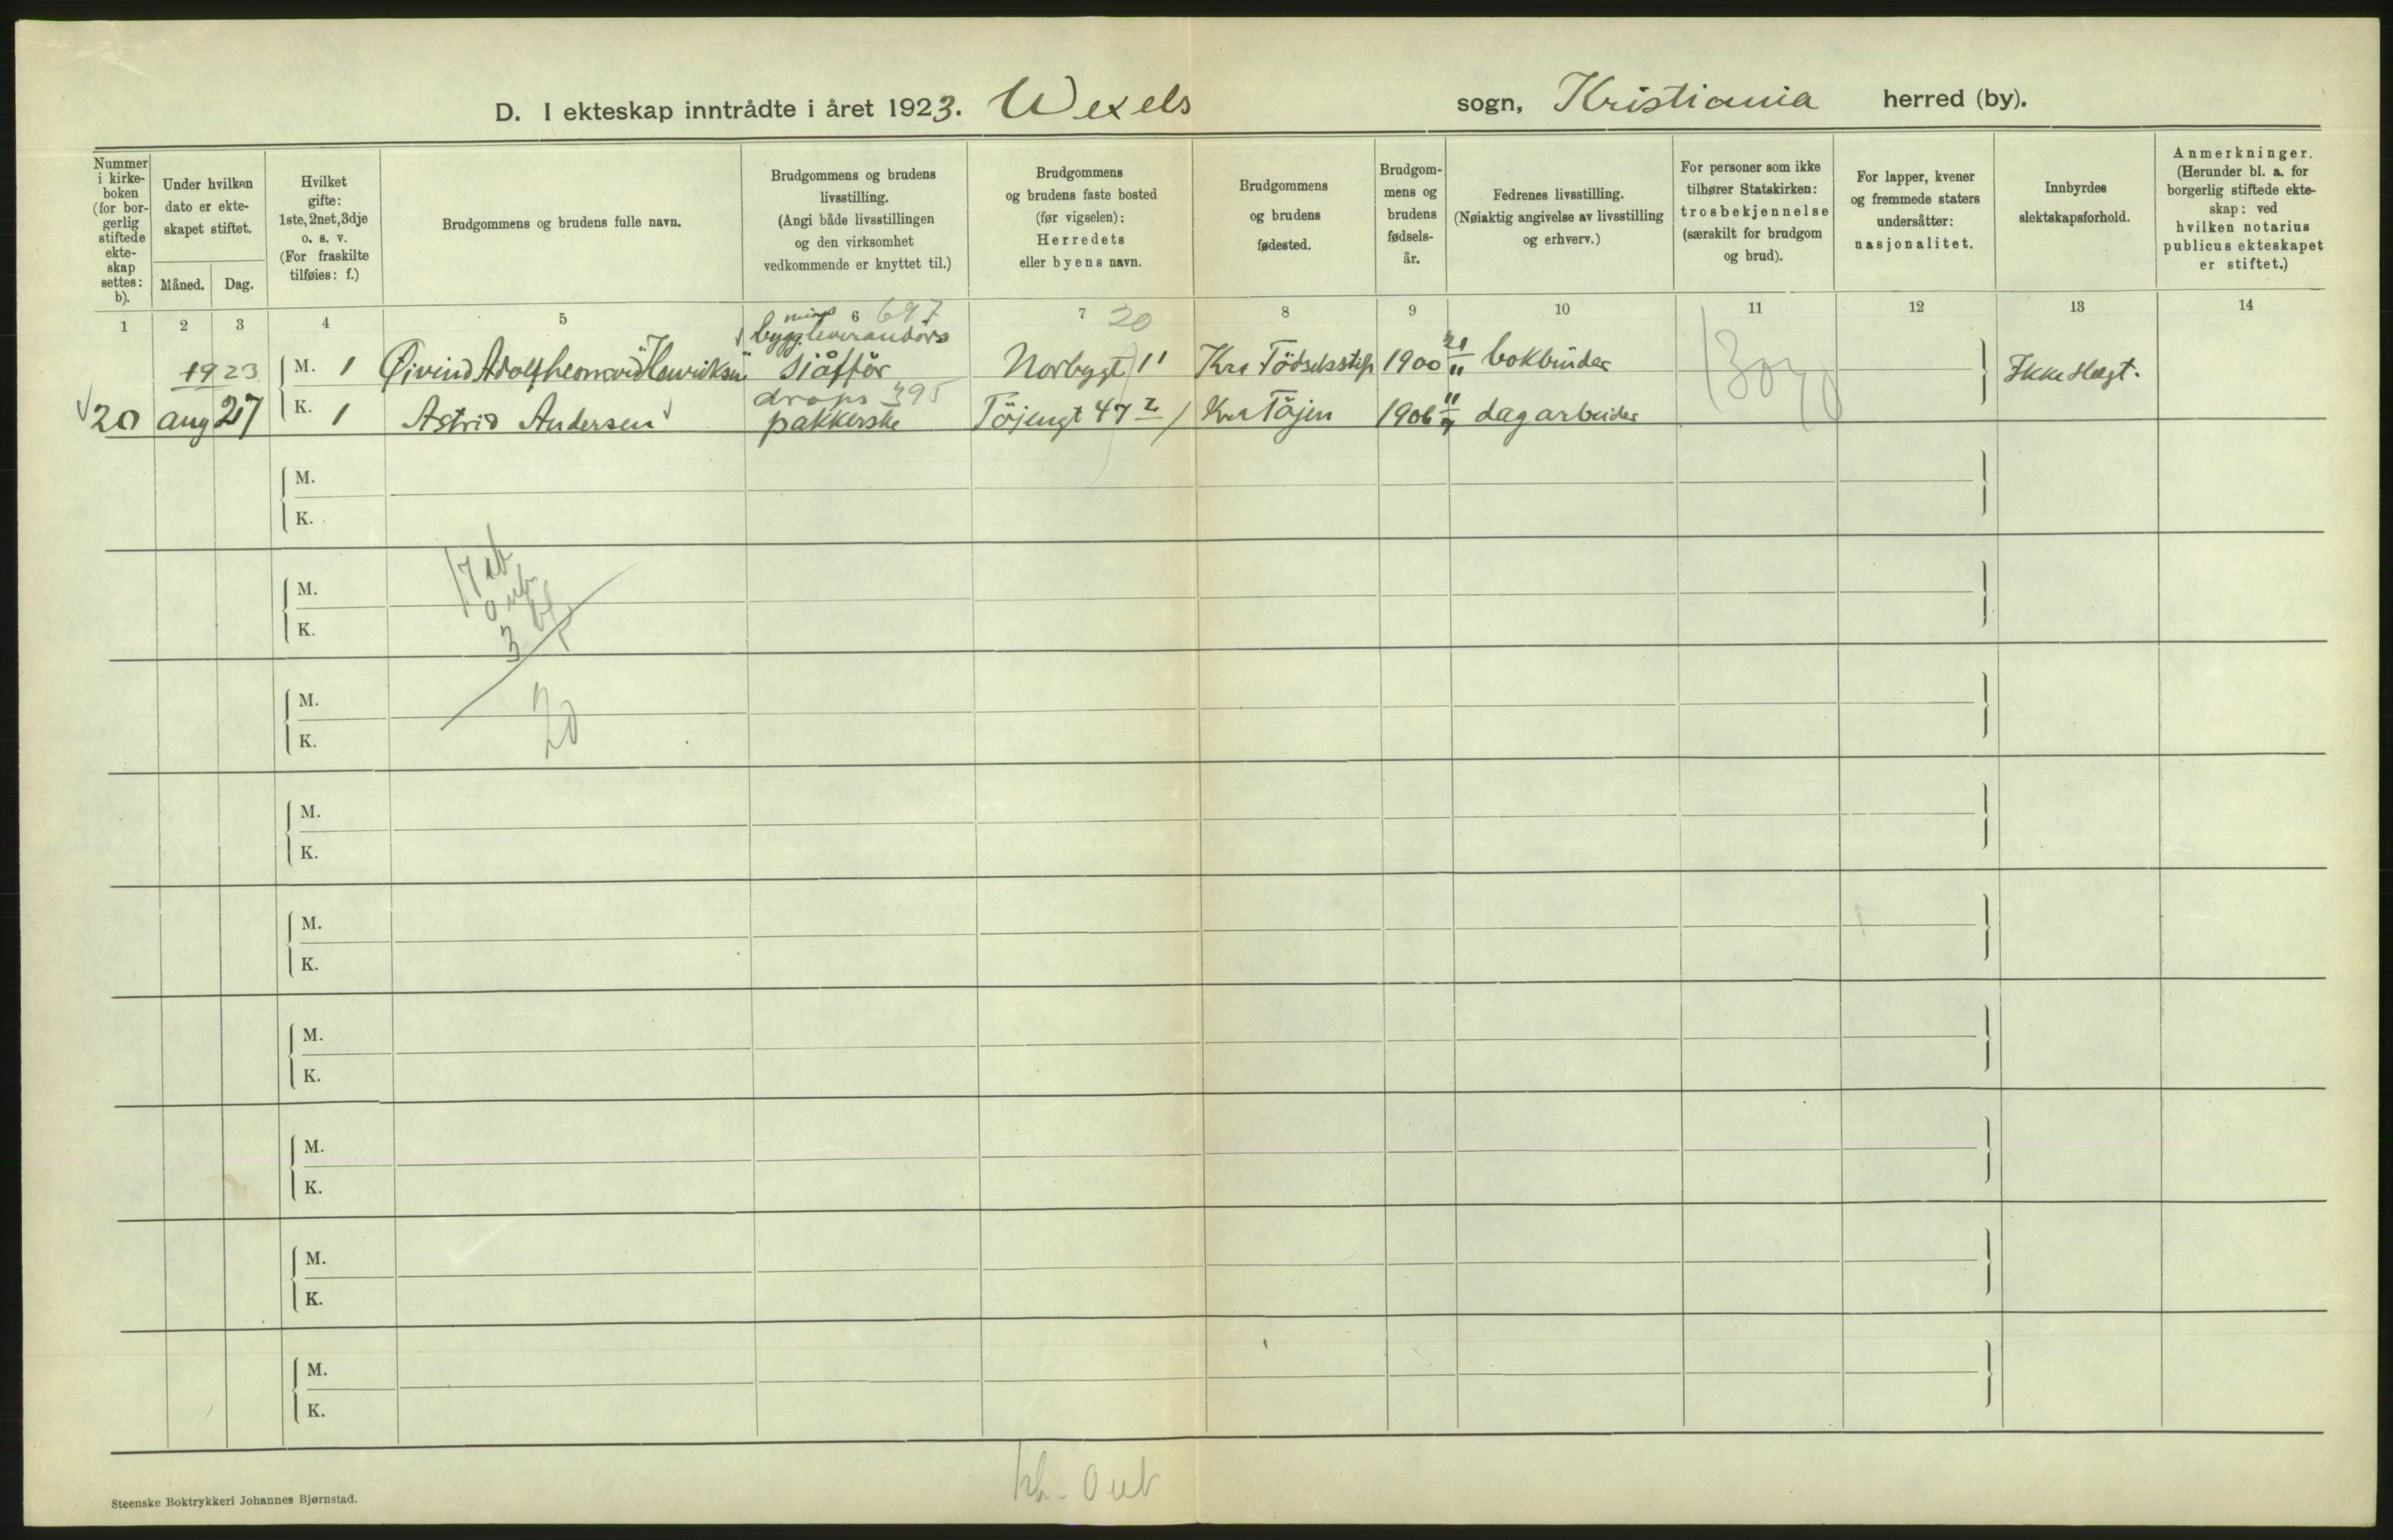 D. I ekteskap inntrådte i året 1923. Wexels sogn, Kristiania herred (by).
Nummer i kirke- boken (for bor- gerlig stiftede ekte- skap settes: b).
Under hvilken dato er ekte- skapet stiftet.
Måned. Dag.
Hvilket gifte: 1ste, 2net, 3dje o. s. v. (For fraskilte tilføies: f.)
Brudgommens og brudens fulle navn.
Brudgommens og brudens livsstilling. (Angi både livsstillingen og den virksomhet vedkommende er knyttet til.)
Brudgommens og brudens faste bosted (før vigselen): Herredets eller byens navn.
Brudgommens og brudens fødested.
Brudgom- mens og brudens fødsels- år.
Fedrenes livsstilling. (Nøiaktig angivelse av livsstilling og erhverv.)
For personer som ikke tilhører Statskirken: trosbekjennelse (særskilt for brudgom og brud).
For lapper, kvener og fremmede staters undersåtter: nasjonalitet.
Innbyrdes slektskapsforhold.
Anmerkninger. (Herunder bl. a. for borgerlig stiftede ekte- skap: ved hvilken notarius publicus ekteskapet er stiftet.)
1 2 3 4 5 6 7 8 9 10 11 12 13 14
697 20
byggleverandørs
1923 M. 1 Øivind Adolf Henriksen sjåffør Norbygt 11 Kra Fødselsstift 1900 21/11 bokbinder Ikke slegt.
drops 395
20 aug 27 K. 1 Astrid Andersen pakkerske Töjengt 47 2 Kra Töjen 1906 dagarbeider
M.
K.
M.
K.
17
3
M.
K.
20
M.
K.
M.
K.
M.
K.
M.
K.
M.
K.
M.
K.
Steenske Boktrykkeri Johannes Bjørnstad.